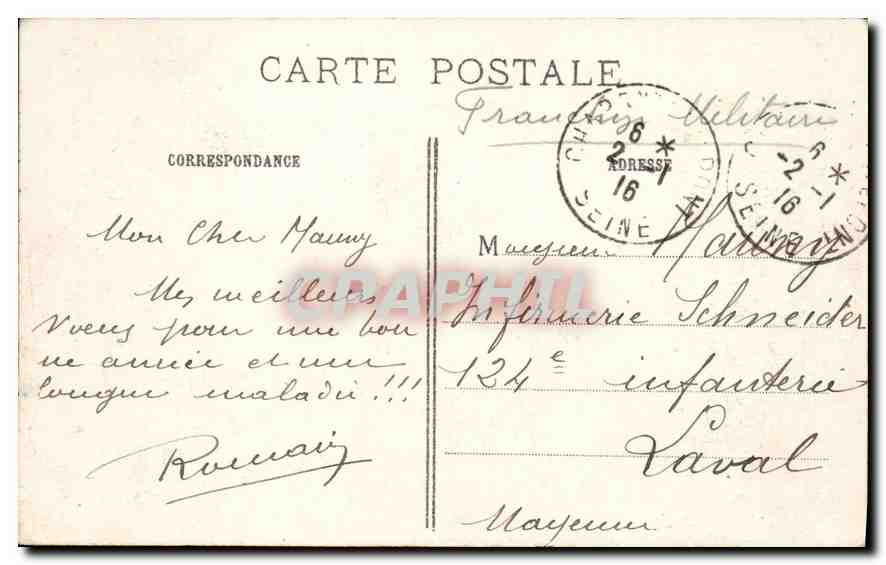 CARTE POSTALE
Franchise Militaire
CORRESPONDANCE
ADRESSE
6 *
2 -1
16
SEINE
6 *
-2 -1
16
SEINE
Mon Cher Maury
Mes meilleurs
voeux pour une bon
ne année et une
longue maladie !!!
Romain
Monsieur Maury
Infirmerie Schneider
124e infanterie
Laval
Mayenne
CPAPHIL